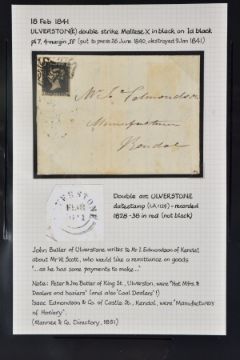 18 Feb 1841
ULVERSTON(E) double strike Maltese X in black on 1d black
pl 7, 4-margin JF (put to press 26 June 1840, destroyed 9 Jan 1841)
Mr. I. Edmondson
Manufacturer
Kendal
ULVERSTONE
FE 18
1841
Double arc ULVERSTONE
datestamp – recorded
1828-38 in red (not black)
John Butler of Ulverstone writes to Mr I Edmondson of Kendal
about Mr W. Scott, who would like a remittance on goods
'...as he has some payments to make...'
Note: Peter & Jno Butler of King St, Ulverston, were "Hat Mfrs &
Dealers and hosiers" (and also 'Coal Dealers'!)
Isaac Edmondson & Co. of Castle St, Kendal, were "Manufacturers
of Hosiery".
(Mannex & Co, Directory, 1851)